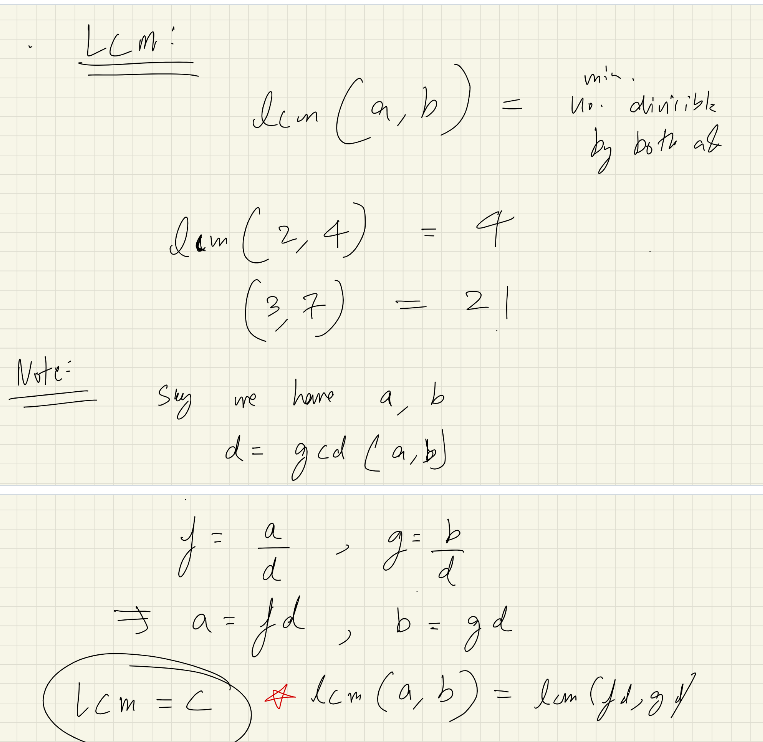 LCM:
lcm (a, b) = min. no. divisible by both a&
lcm (2, 4) = 4
(3, 7) = 21
Note:
Say we have a, b
d = gcd (a, b)
f = a/d , g = b/d
⇒ a = fd , b = gd
LCM = C ☆ lcm (a, b) = lcm (fd, gd)